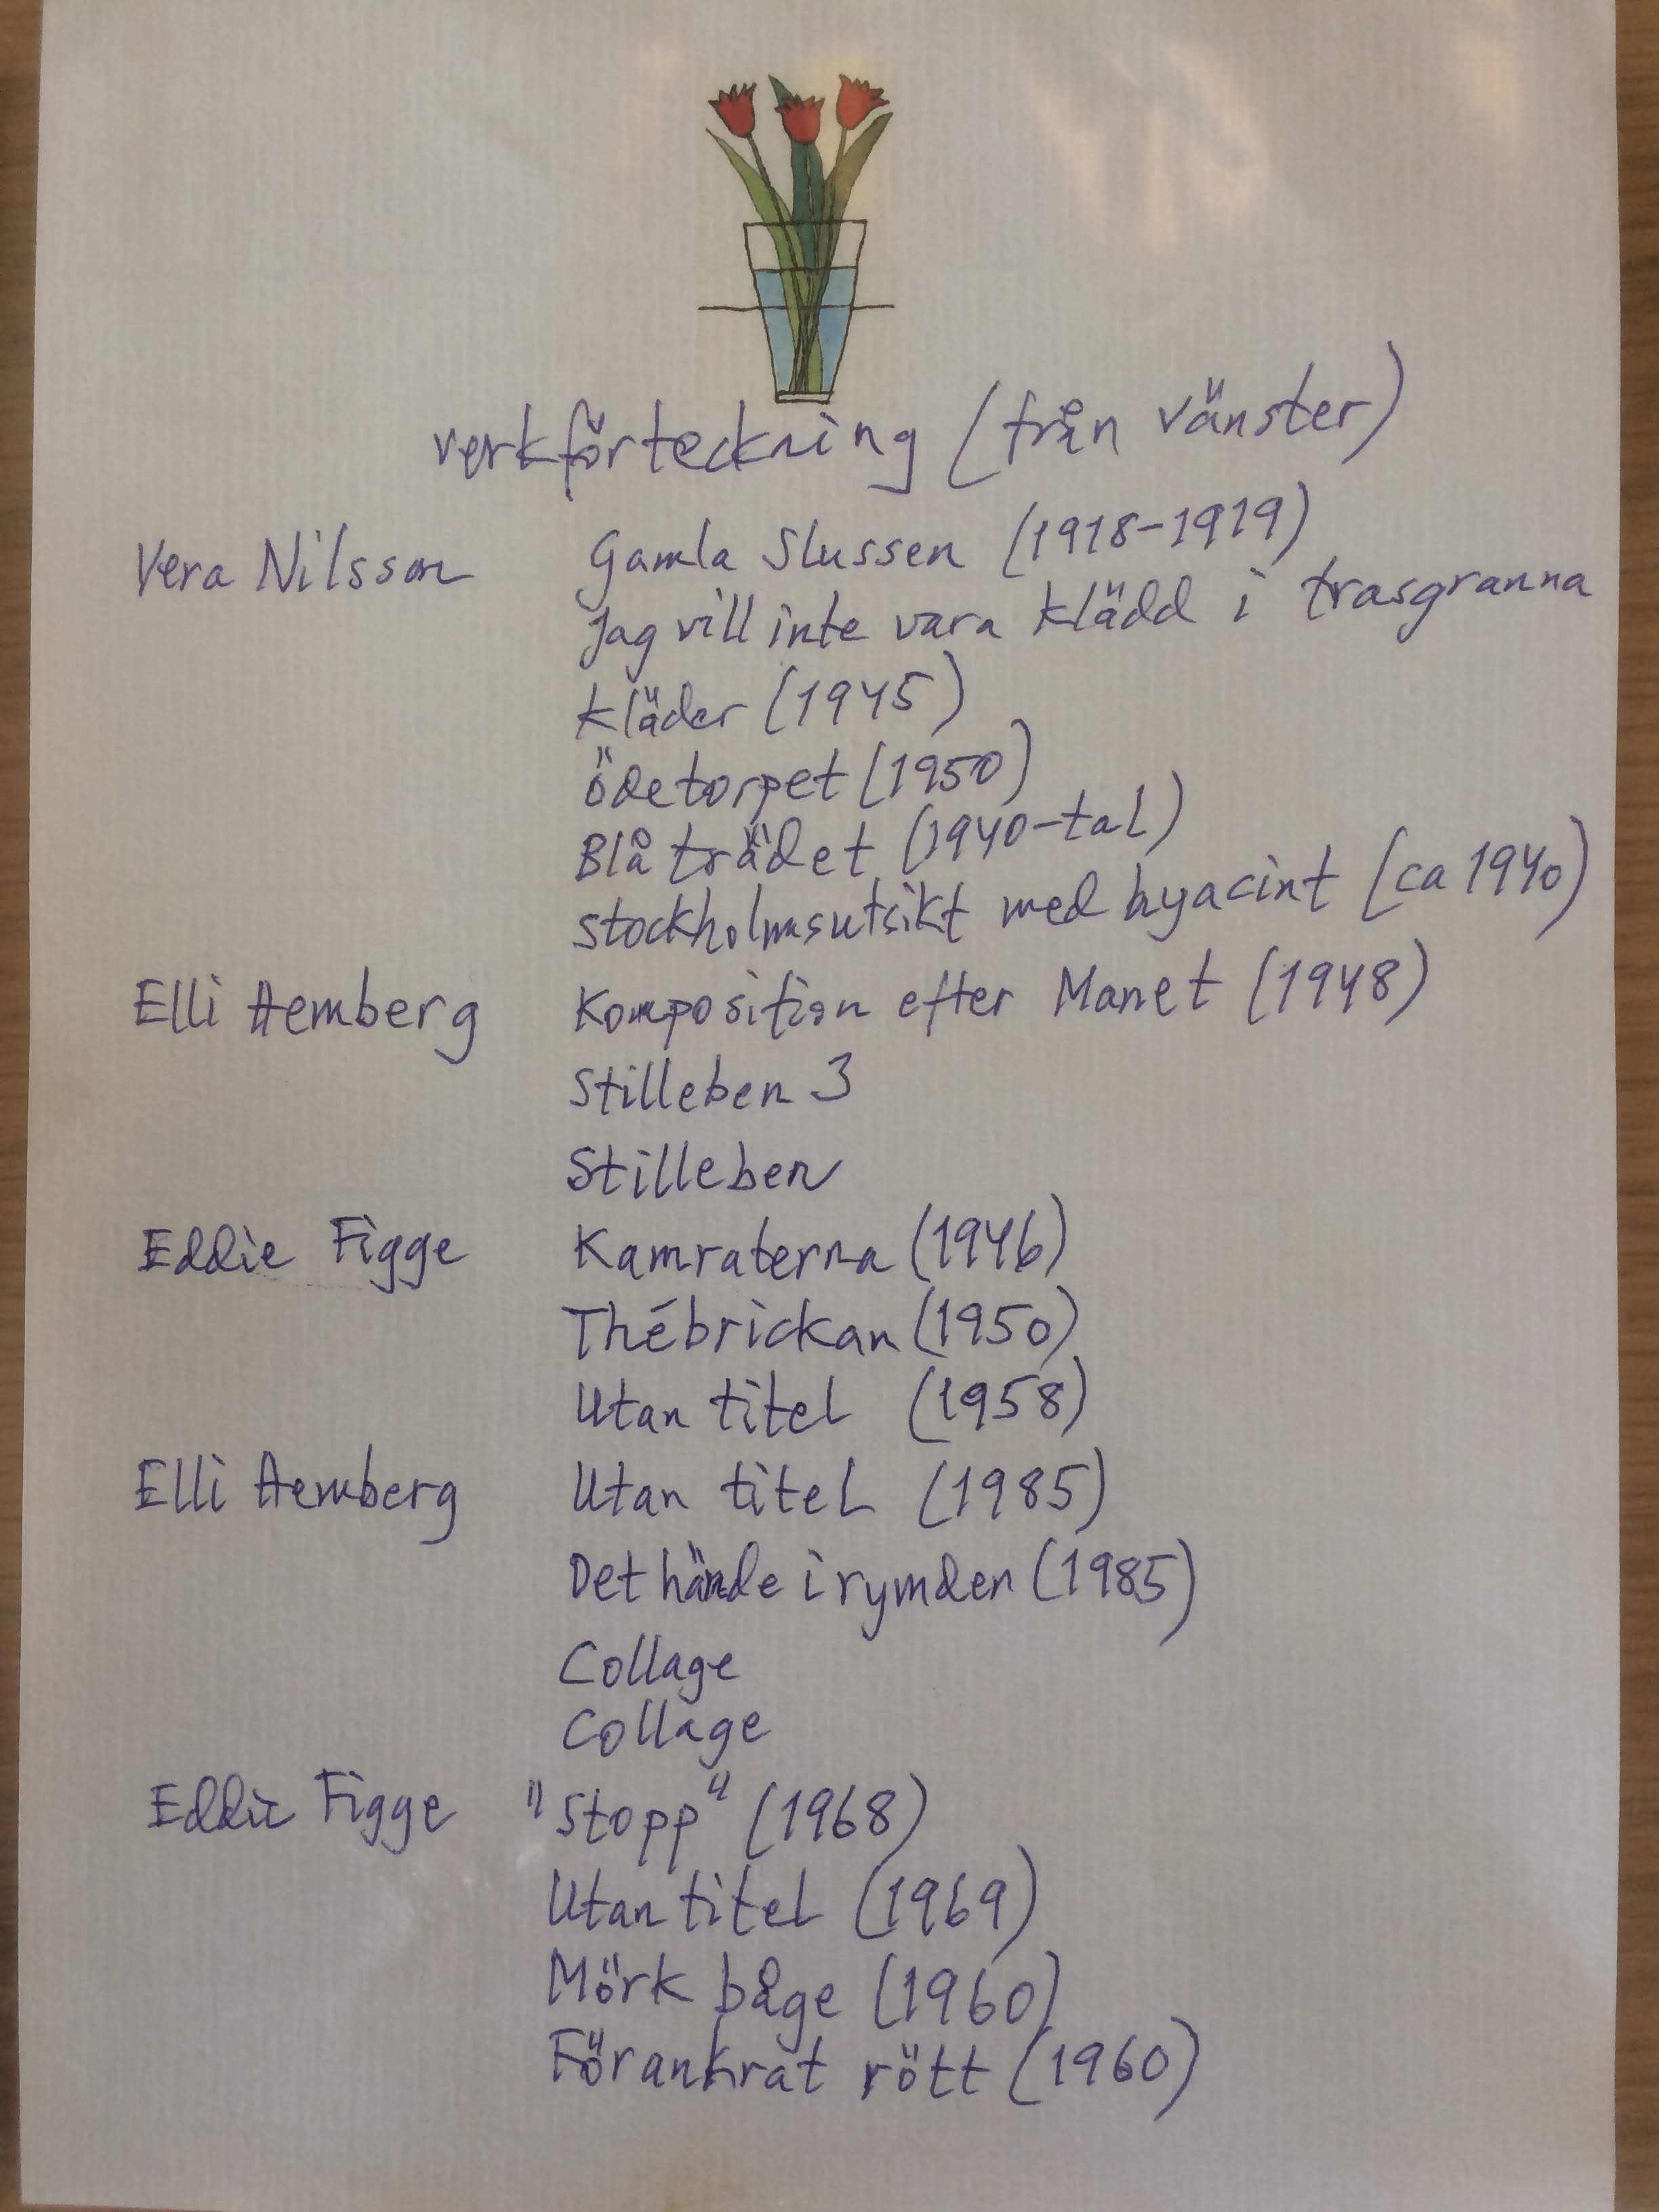 verkförteckning (från vänster)
Vera Nilsson Gamla Slussen (1918-1919)
Jag vill inte vara klädd i trasgranna
kläder (1945)
Ödetorpet (1950)
Blå trädet (1940-tal)
Stockholmsutsikt med hyacint (ca 1940)
Elli Hemberg Komposition efter Manet (1948)
Stilleben 3
Stilleben
Eddie Figge Kamraterna (1946)
Thébrickan (1950)
Utan titel (1958)
Elli Hemberg Utan titel (1985)
Det hände i rymden (1985)
Collage
Collage
Eddie Figge "Stopp" (1968)
Utan titel (1969)
Mörk båge (1960)
Förankrat rött (1960)